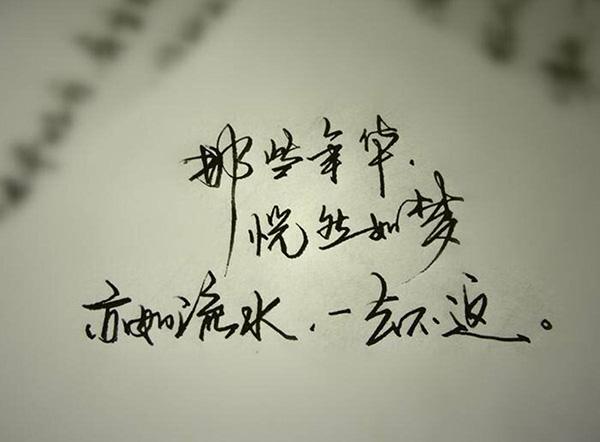 那些年华，
恍然如梦
亦如流水，一去不返。